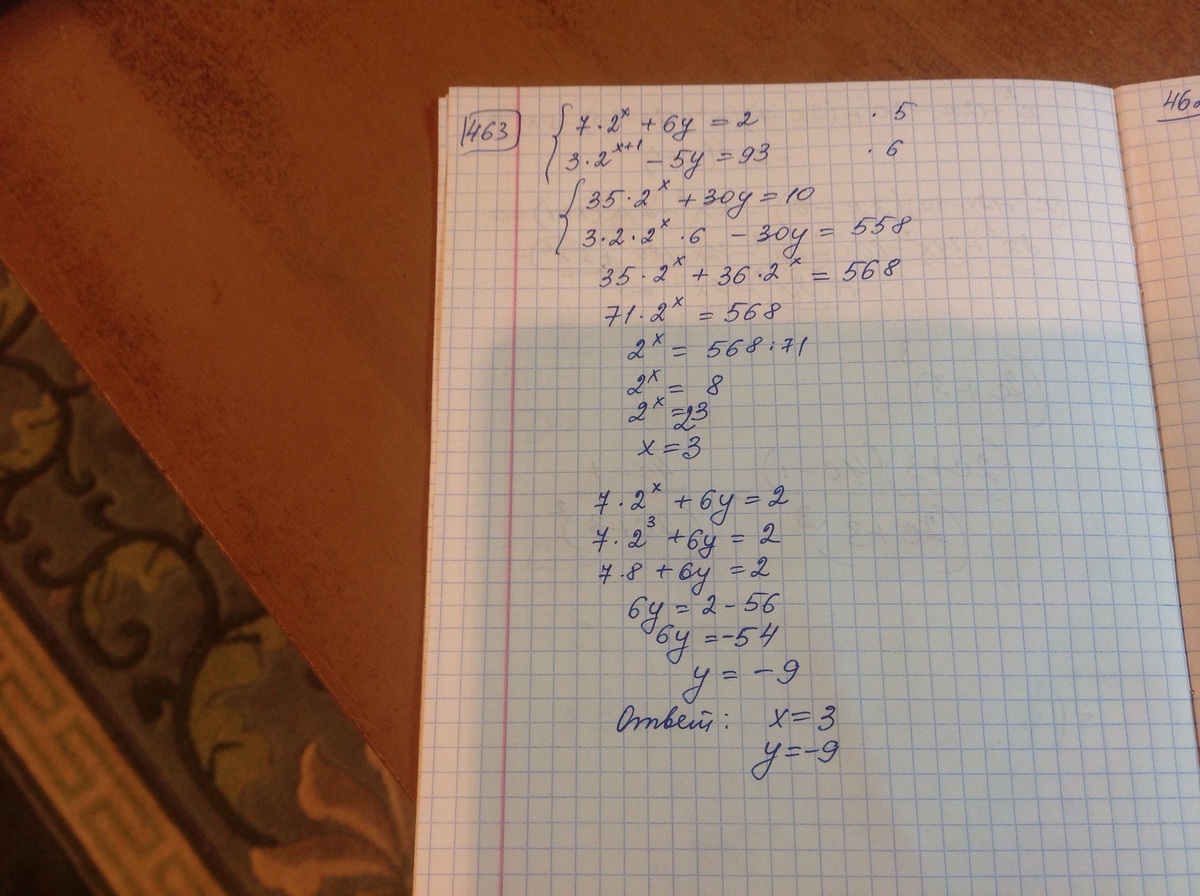 463
7·2^x + 6y = 2 · 5
3·2^x+1 − 5y = 93 · 6
35·2^x + 30y = 10
3·2·2^x·6 − 30y = 558
35·2^x + 36·2^x = 568
71·2^x = 568
2^x = 568:71
2^x = 8
2^x = 2^3
x = 3
7·2^x + 6y = 2
7·2^3 + 6y = 2
7·8 + 6y = 2
6y = 2 − 56
6y = −54
y = −9
Ответ: x = 3
y = −9